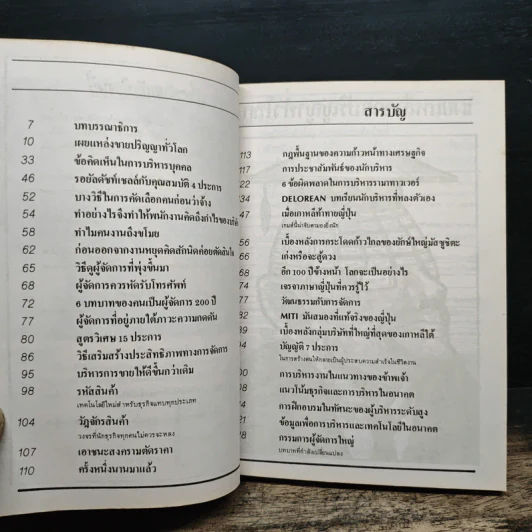 7 บทบรรณาธิการ
10 เผยแหล่งขายปริญญาทั่วโลก
33 ข้อคิดเห็นในการบริหารบุคคล
46 รอยัลดัชท์เชลล์กับคุณสมบัติ 4 ประการ
52 บางวิธีในการคัดเลือกคนก่อนว่าจ้าง
54 ทำอย่างไรจึงทำให้พนักงานคิดถึงกำไรของบริษัท
58 ทำไมคนงานถึงขโมย
62 ก่อนออกจากงานหยุดคิดสักนิดค่อยตัดสินใจ
65 วิธีดูผู้จัดการที่พุ่งขึ้นมา
68 ผู้จัดการควรหัดรับโทรศัพท์
72 6 บทบาทของคนเป็นผู้จัดการ 200 ปี
77 ผู้จัดการที่อยู่ภายใต้ภาวะความกดดัน
80 สูตรวิเศษ 15 ประการ
86 วิธีเสริมสร้างประสิทธิภาพทางการจัดการ
95 บริหารการขายให้ดีขึ้นกว่าเดิม
98 รหัสสินค้า
เทคโนโลยีใหม่สำหรับธุรกิจแทบทุกประเภท
104 วัฎจักรสินค้า
วงจรที่นักธุรกิจทุกคนไม่ควรจะหลง
107 เอาชนะสงครามตัดราคา
110 ครึ่งหนึ่งนานมาแล้ว
สารบัญ
113 กฎพื้นฐานของความก้าวหน้าทางเศรษฐกิจ
การประชาสัมพันธ์ของนักบริหาร
6 ข้อผิดพลาดในการบริหารรามาทาวเวอร์
DELOREAN บทเรียนนักบริหารที่หลงตัวเอง
เมื่อเกาหลีท้าทายญี่ปุ่น
เบื้องหลังการกระโดดก้าวไกลของยักษ์ใหญ่มัสซูชิตะ
เก่งหรือจะสู้ดวง
อีก 100 ปีข้างหน้า โลกจะเป็นอย่างไร
เจรจาภาษาญี่ปุ่นที่ควรรู้ไว้
วัฒนธรรมกับการจัดการ
MITI มันสมองที่แท้จริงของญี่ปุ่น
เบื้องหลังกลุ่มบริษัทที่ใหญ่ที่สุดของเกาหลีใต้
บัญญัติ 7 ประการ
ในการสร้างตนให้กลายเป็นผู้ประสบความสำเร็จในชีวิตงาน
การบริหารงานในแนวทางของข้าพเจ้า
แนวโน้มธุรกิจและการบริหารในอนาคต
การฝึกอบรมในทัศนะของผู้บริหารระดับสูง
ข้อมูลเพื่อการบริหารและเทคโนโลยีในอนาคต
กรรมการผู้จัดการใหญ่
บทบาทที่กำลังเปลี่ยนแปลง